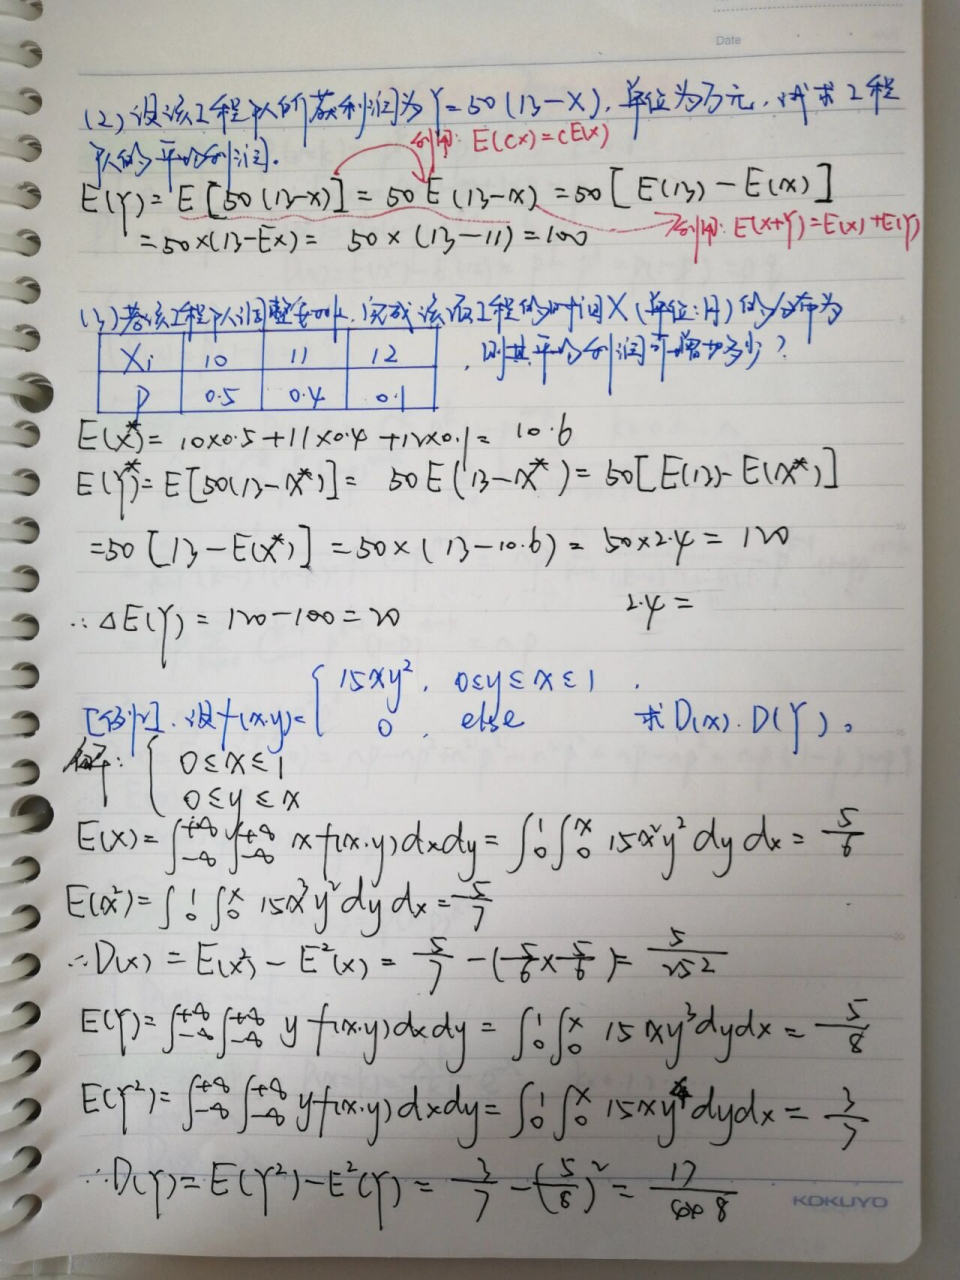 Date
(2)设该工程队所获利润为Y=50(13-X),单位为万元,试求工程
队的平均利润。
利用: E(CX)=CE(X)
E(Y)=E[50(13-X)]=50E(13-X)=50[E(13)-E(X)]
利用: E(X+Y)=E(X)+E(Y)
=50×(13-EX)=50×(13-11)=100
(3)若该工程队调整后,完成该项工程的时间X(单位:月)的分布为
Xi 10 11 12
,则其平均利润可增加多少?
P 0.5 0.4 0.1
E(X*)=10×0.5+11×0.4+12×0.1=10.6
E(Y*)=E[50(13-X*)]=50E(13-X*)=50[E(13)-E(X*)]
=50[13-E(X*)]=50×(13-10.6)=50×2.4=120
∴ΔE(Y)=120-100=20
2.4=
[例12].设f(x.y)={15xy², 0≤y≤x≤1.
0, else
求D(X).D(Y)。
解:{0≤x≤1
0≤y≤x
E(X)=∫_{-∞}^{+∞}∫_{-∞}^{+∞} x f(x.y)dxdy=∫_0^1∫_0^x 15x²y²dydx=5/6
E(X²)=∫_0^1∫_0^x 15x³y²dydx=5/7
∴D(X)=E(X²)-E²(X)=5/7-(5/6×5/6)=5/252
E(Y)=∫_{-∞}^{+∞}∫_{-∞}^{+∞} y f(x.y)dxdy=∫_0^1∫_0^x 15xy³dydx=5/8
E(Y²)=∫_{-∞}^{+∞}∫_{-∞}^{+∞} yf(x.y)dxdy=∫_0^1∫_0^x 15xy⁴dydx=3/7
∴D(Y)=E(Y²)-E²(Y)=3/7-(5/8)²=17/
KOKUYO